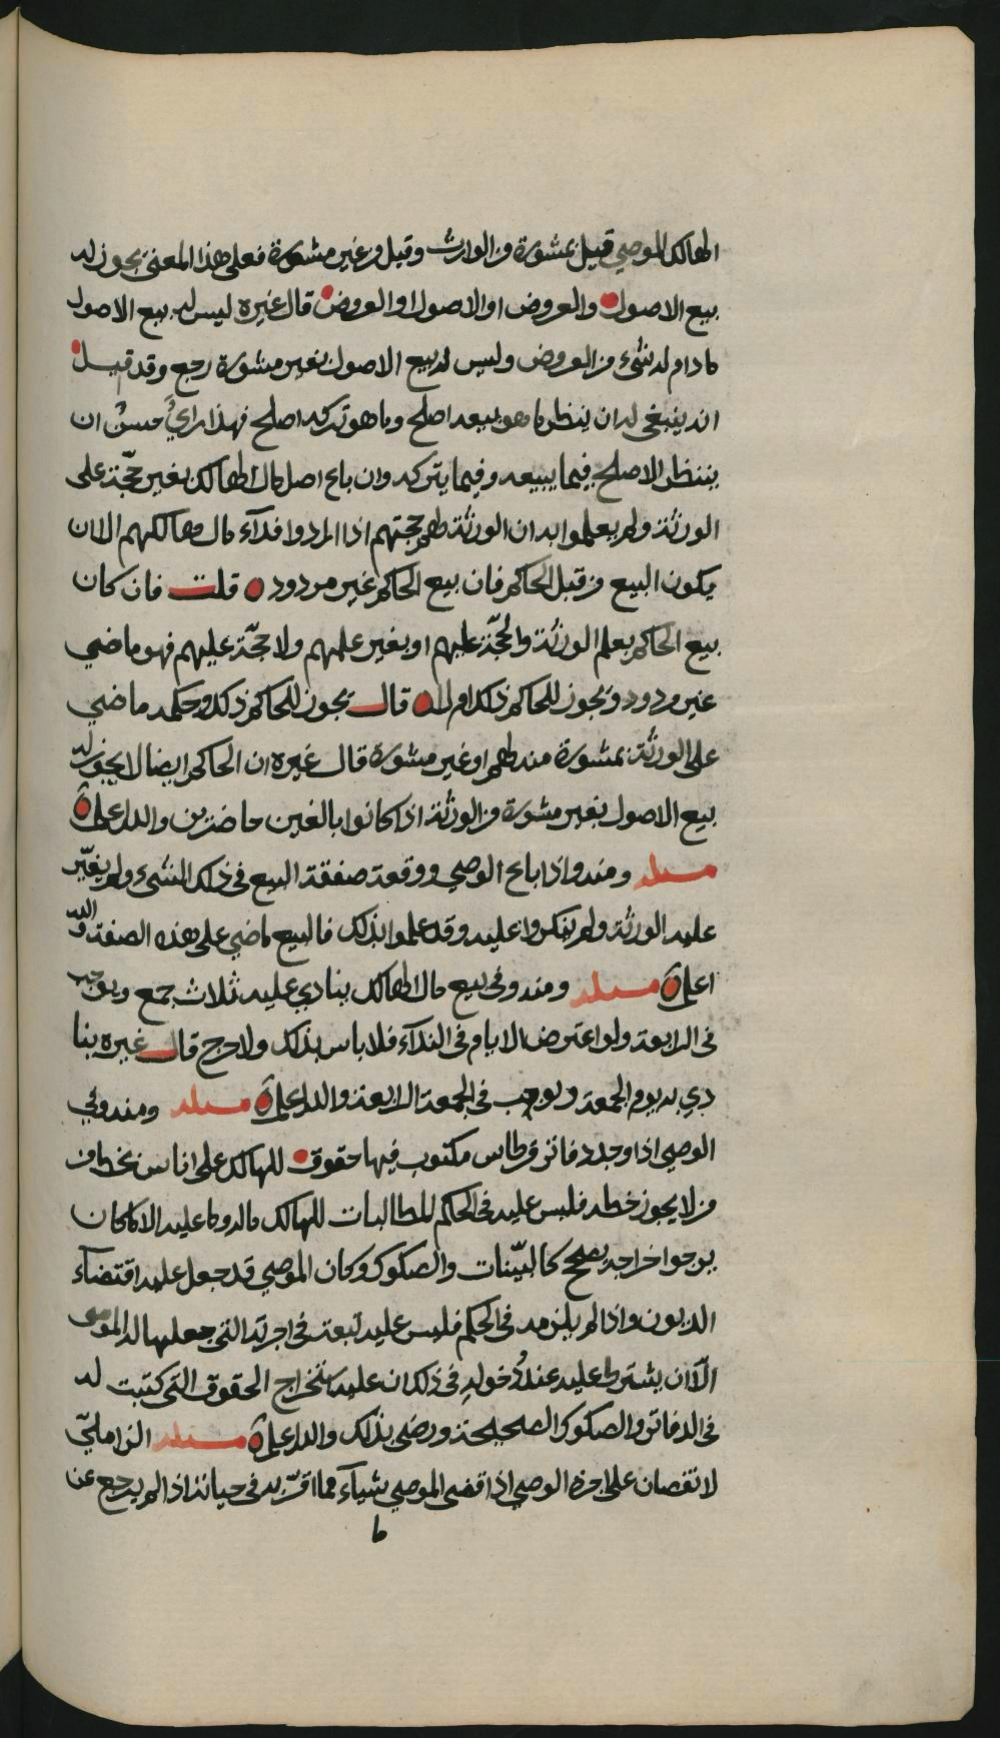 الهالك الموصي قيل بمشورة من الوارث وقيل من غير مشورة فعلى هذا المعنى يجوز له
بيع الاصول والعروض او الاصول او العروض قال غيره ليس له بيع الاصول
ما دام له شيء من العروض وليس له بيع الاصول بغير مشورة رجع وقد قيل
انه ينبغي له ان ينظر ما هو بيعه اصلح وما هو تركه اصلح فهذا رأيٌ حسنٌ ان
ينتظر الاصلح فيما يبيعه وفيما يتركه وان باع اصل مال الهالك بغير حجّة على
الورثة ولم يعلموا به ان الورثة لهم حجتهم اذا ارادوا فداء مال هالكهم الا ان
يكون البيع من قبل الحاكم فان بيع الحاكم غير مردود قلت فان كان
بيع الحاكم بعلم الورثة والحجّة عليهم او بغير علمهم ولا حجّة عليهم فهو ماضي
غير مردود ويجوز للحاكم ذلك ام لا قال يجوز للحاكم ذلك وحكمه ماضي
على الورثة بمشورة منه لهم او غير مشورة قال غيره ان الحاكم ايضا لا يجوز له
بيع الاصول بغير مشورة من الورثة اذا كانوا بالغين حاضرين والله اعلم
مسئلة ومنه واذا باع الوصي ووقعة صفقة البيع في ذلك الشيء ولم يغيّر
عليه الورثة ولم ينكروا عليه وقد علموا بذلك فالبيع ماضي على هذه الصفة والله
اعلم مسئلة ومنه وفي بيع مال الهالك ينادي عليه ثلاث جمع ويوجب
في الرابعة ولو اعترض الايام في النداء فلا باس بذلك ولا حرج قال غيره ينا
دي به يوم الجمعة ويوجب في الجمعة الرابعة والله اعلم مسئلة ومنه وفي
الوصي اذا وجد دفاتر وقرطاس مكتوب فيها حقوق للهالك على اناس بخط من
من لا يجوز خطه فليس عليه في الحكم المطالبات للهالك ماله وما عليه الا ما كان
يرجوا اخراجه يصح كالبيّنات والصكوك وكان الموصي قد جعل عليه اقتضاء
الديون واذا لم يلزمه في الحكم فليس عليه تبعة في اجرته التي جعلها له الموصى
الّا ان يشترط عليه عند دُخوله في ذلك ان عليه ستخراج الحقوق التي كتبت له
في الدفاتر والصكوك الصحيحة ورضي بذلك والله اعلم مسئلة الزامليّ
لا نقصان على اجرة الوصي اذا قضى الموصي شياء مما اقرّ به في حياته اذا لم يرجع عن
ط